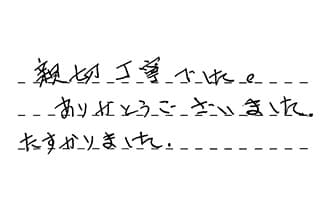 親切丁寧でした。
ありがとうございました.
たすかりました.